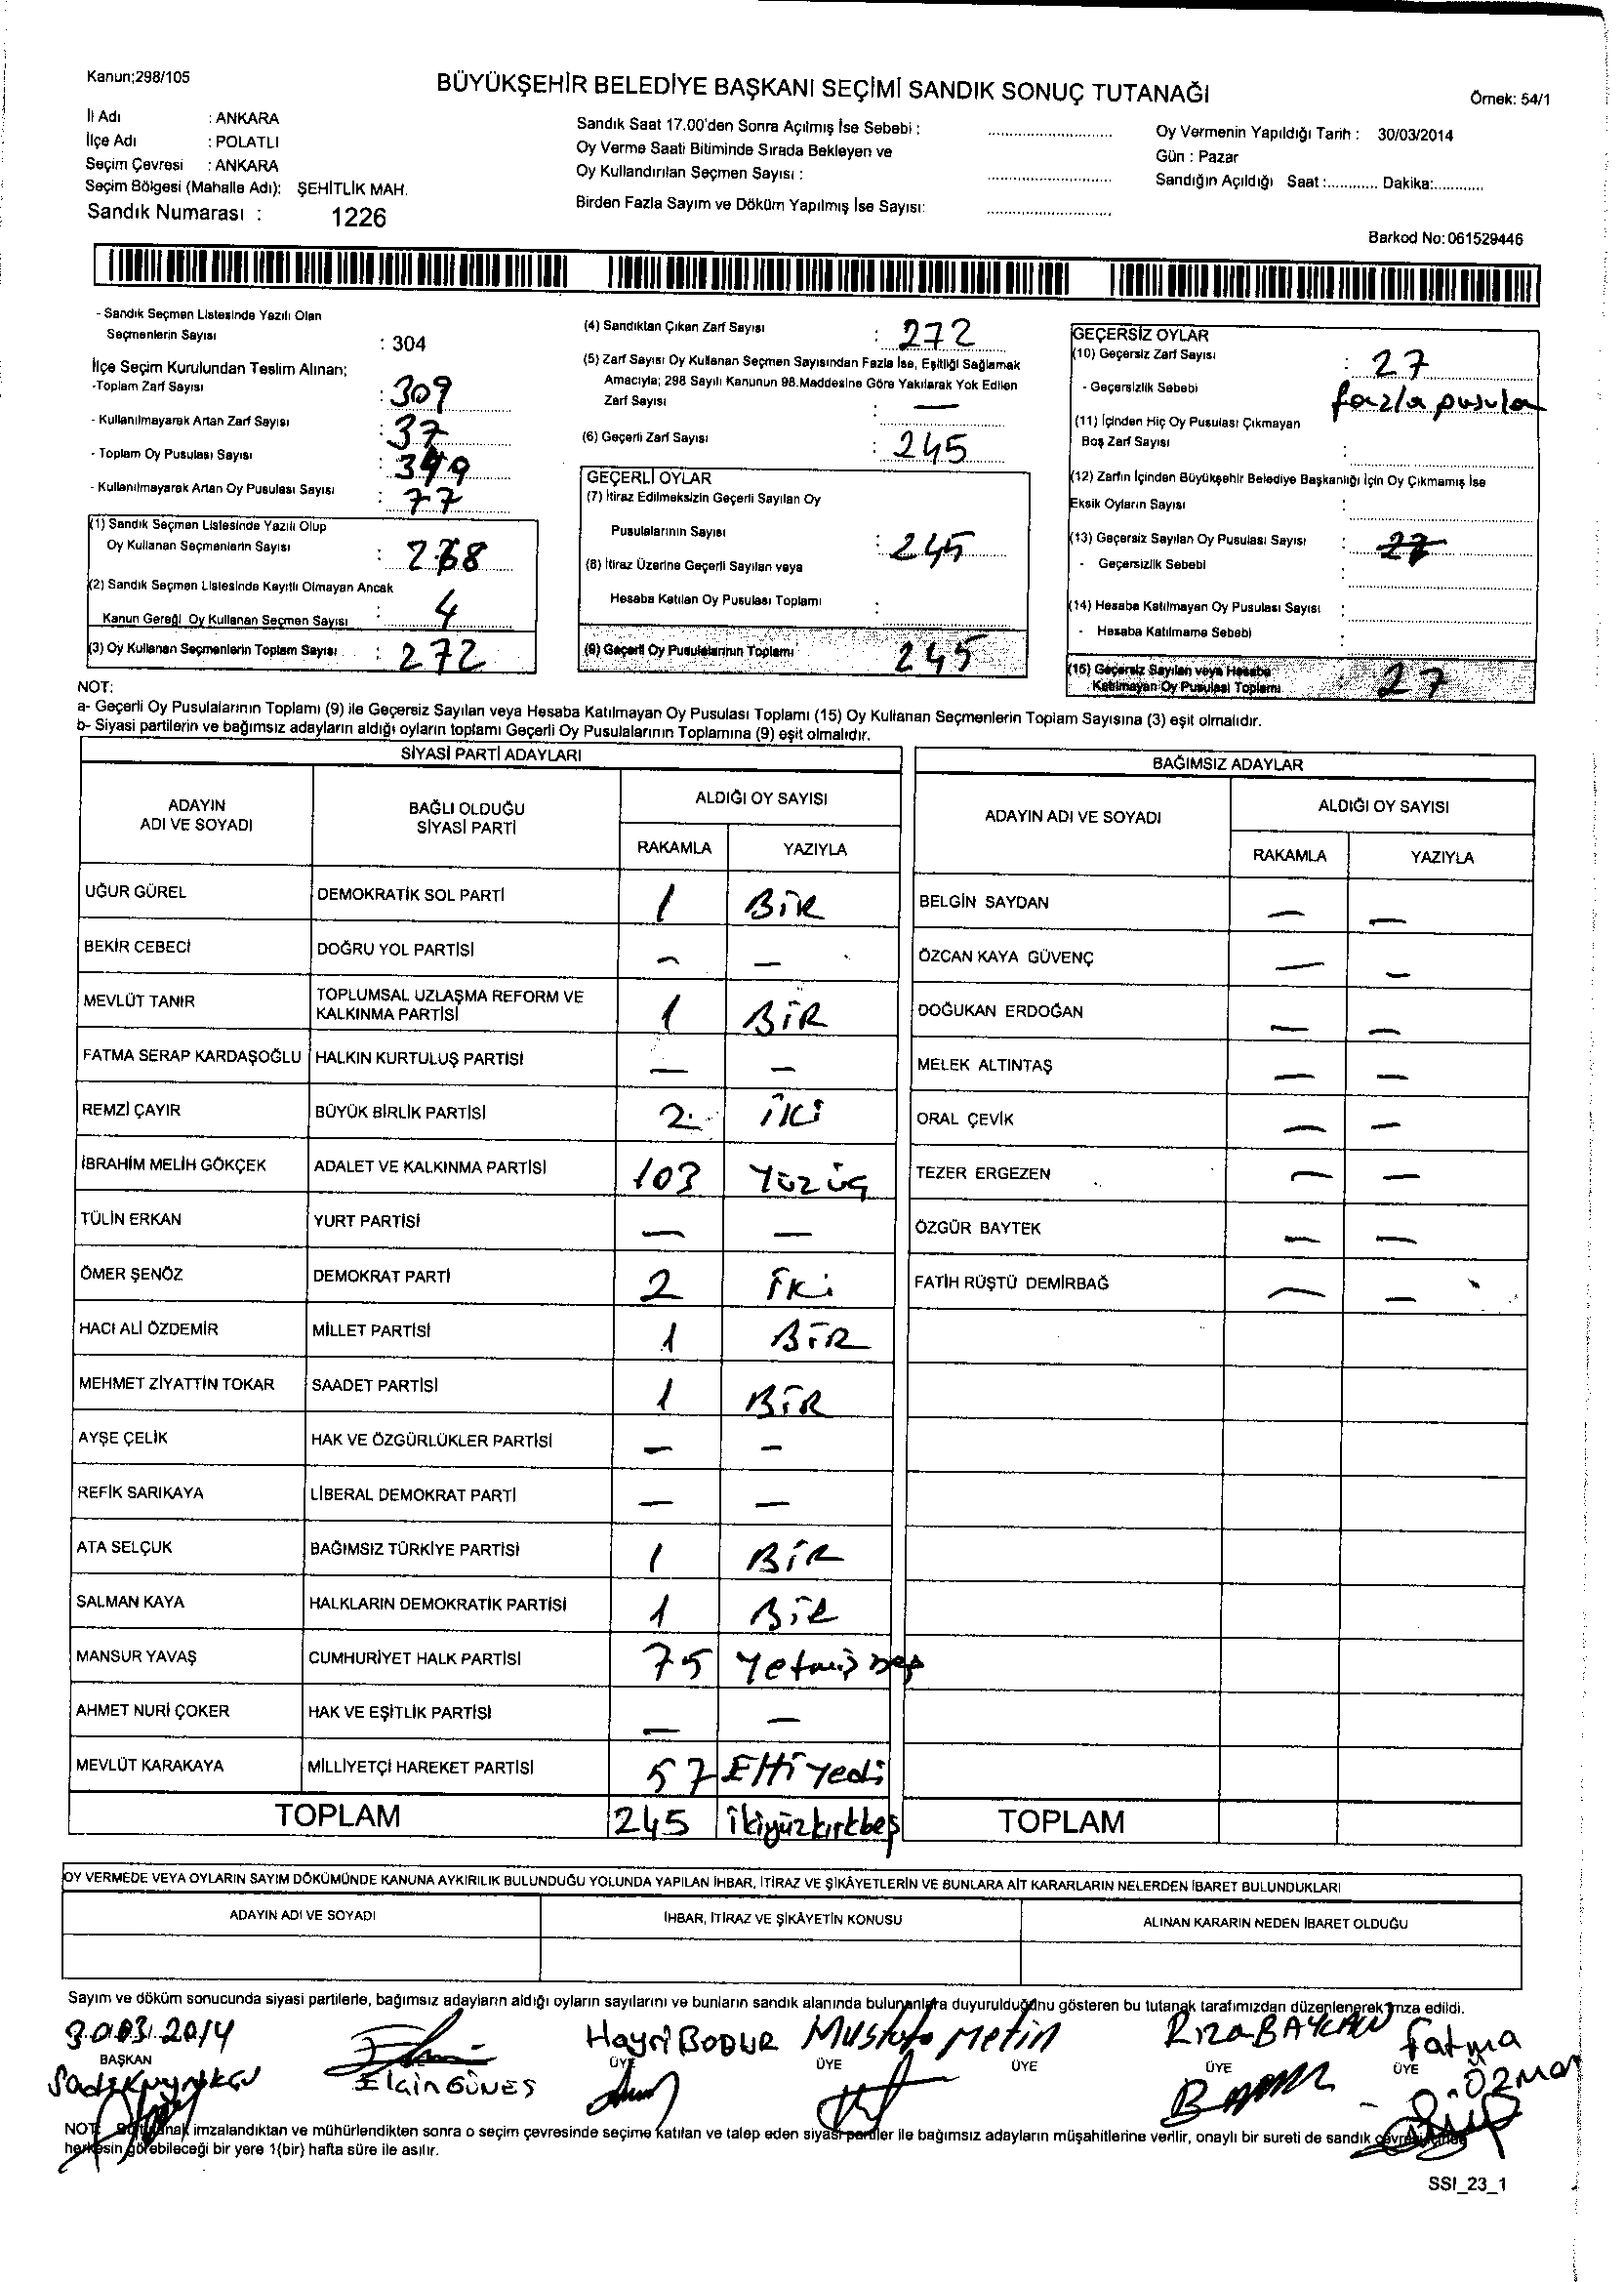 Kanun;298/105
BÜYÜKŞEHİR BELEDİYE BAŞKANI SEÇİMİ SANDIK SONUÇ TUTANAĞI
Örnek: 54/1
İl Adı : ANKARA
İlçe Adı : POLATLI
Seçim Çevresi : ANKARA
Seçim Bölgesi (Mahalle Adı): ŞEHİTLİK MAH.
Sandık Numarası : 1226
Sandık Saat 17.00'den Sonra Açılmış İse Sebebi :
Oy Verme Saati Bitiminde Sırada Bekleyen ve
Oy Kullandırılan Seçmen Sayısı :
Birden Fazla Sayım ve Döküm Yapılmış İse Sayısı:
Oy Vermenin Yapıldığı Tarih : 30/03/2014
Gün : Pazar
Sandığın Açıldığı Saat :............ Dakika:............
Barkod No: 061529446
- Sandık Seçmen Listesinde Yazılı Olan
Seçmenlerin Sayısı : 304
İlçe Seçim Kurulundan Teslim Alınan;
-Toplam Zarf Sayısı : 309
- Kullanılmayarak Artan Zarf Sayısı : 37
- Toplam Oy Pusulası Sayısı : 349
- Kullanılmayarak Artan Oy Pusulası Sayısı : 77
(1) Sandık Seçmen Listesinde Yazılı Olup
Oy Kullanan Seçmenlerin Sayısı : 268
(2) Sandık Seçmen Listesinde Kayıtlı Olmayan Ancak
Kanun Gereği Oy Kullanan Seçmen Sayısı : 4
(3) Oy Kullanan Seçmenlerin Toplam Sayısı : 272
(4) Sandıktan Çıkan Zarf Sayısı : 272
(5) Zarf Sayısı Oy Kullanan Seçmen Sayısından Fazla İse, Eşitliği Sağlamak
Amacıyla; 298 Sayılı Kanunun 98.Maddesine Göre Yakılarak Yok Edilen
Zarf Sayısı : —
(6) Geçerli Zarf Sayısı : 245
GEÇERLİ OYLAR
(7) İtiraz Edilmeksizin Geçerli Sayılan Oy
Pusulalarının Sayısı : 245
(8) İtiraz Üzerine Geçerli Sayılan veya
Hesaba Katılan Oy Pusulası Toplamı :
(9) Geçerli Oy Pusulalarının Toplamı 245
GEÇERSİZ OYLAR
(10) Geçersiz Zarf Sayısı : 27
- Geçersizlik Sebebi fazla pusula
(11) İçinden Hiç Oy Pusulası Çıkmayan
Boş Zarf Sayısı :
(12) Zarfın İçinden Büyükşehir Belediye Başkanlığı İçin Oy Çıkmamış İse
Eksik Oyların Sayısı :
(13) Geçersiz Sayılan Oy Pusulası Sayısı : 27
- Geçersizlik Sebebi :
(14) Hesaba Katılmayan Oy Pusulası Sayısı :
- Hesaba Katılmama Sebebi :
(15) Geçersiz Sayılan veya Hesaba
Katılmayan Oy Pusulası Toplamı 27
NOT:
a- Geçerli Oy Pusulalarının Toplamı (9) ile Geçersiz Sayılan veya Hesaba Katılmayan Oy Pusulası Toplamı (15) Oy Kullanan Seçmenlerin Toplam Sayısına (3) eşit olmalıdır.
b- Siyasi partilerin ve bağımsız adayların aldığı oyların toplamı Geçerli Oy Pusulalarının Toplamına (9) eşit olmalıdır.
SİYASİ PARTİ ADAYLARI
ADAYIN ADI VE SOYADI BAĞLI OLDUĞU SİYASİ PARTİ ALDIĞI OY SAYISI
RAKAMLA YAZIYLA
UĞUR GÜREL DEMOKRATİK SOL PARTİ 1 BİR
BEKİR CEBECİ DOĞRU YOL PARTİSİ — —
MEVLÜT TANIR TOPLUMSAL UZLAŞMA REFORM VE KALKINMA PARTİSİ 1 BİR
FATMA SERAP KARDAŞOĞLU HALKIN KURTULUŞ PARTİSİ — —
REMZİ ÇAYIR BÜYÜK BİRLİK PARTİSİ 2 İKİ
İBRAHİM MELİH GÖKÇEK ADALET VE KALKINMA PARTİSİ 103 Yüzüç
TÜLİN ERKAN YURT PARTİSİ — —
ÖMER ŞENÖZ DEMOKRAT PARTİ 2 İKİ
HACI ALİ ÖZDEMİR MİLLET PARTİSİ 1 BİR
MEHMET ZİYATTİN TOKAR SAADET PARTİSİ 1 BİR
AYŞE ÇELİK HAK VE ÖZGÜRLÜKLER PARTİSİ — —
REFİK SARIKAYA LİBERAL DEMOKRAT PARTİ — —
ATA SELÇUK BAĞIMSIZ TÜRKİYE PARTİSİ 1 BİR
SALMAN KAYA HALKLARIN DEMOKRATİK PARTİSİ 1 BİR
MANSUR YAVAŞ CUMHURİYET HALK PARTİSİ 75 Yetmiş beş
AHMET NURİ ÇOKER HAK VE EŞİTLİK PARTİSİ — —
MEVLÜT KARAKAYA MİLLİYETÇİ HAREKET PARTİSİ 57 Elli Yedi
TOPLAM 245 İkiyüzkırkbeş
BAĞIMSIZ ADAYLAR
ADAYIN ADI VE SOYADI ALDIĞI OY SAYISI
RAKAMLA YAZIYLA
BELGİN SAYDAN — —
ÖZCAN KAYA GÜVENÇ — —
DOĞUKAN ERDOĞAN — —
MELEK ALTINTAŞ — —
ORAL ÇEVİK — —
TEZER ERGEZEN — —
ÖZGÜR BAYTEK — —
FATİH RÜŞTÜ DEMİRBAĞ — —
TOPLAM
OY VERMEDE VEYA OYLARIN SAYIM DÖKÜMÜNDE KANUNA AYKIRILIK BULUNDUĞU YOLUNDA YAPILAN İHBAR, İTİRAZ VE ŞİKÂYETLERİN VE BUNLARA AİT KARARLARIN NELERDEN İBARET BULUNDUKLARI
ADAYIN ADI VE SOYADI İHBAR, İTİRAZ VE ŞİKÂYETİN KONUSU ALINAN KARARIN NEDEN İBARET OLDUĞU
Sayım ve döküm sonucunda siyasi partilerle, bağımsız adayların aldığı oyların sayılarını ve bunların sandık alanında bulunanlara duyurulduğunu gösteren bu tutanak tarafımızdan düzenlenerek imza edildi.
30.03.2014 Hayri BODUR Mustafa Metin Rıza BAYCAN Fatma
BAŞKAN ÜYE ÜYE ÜYE ÜYE ÜYE
Elçin GÜNEŞ
NOT: Bu tutanak imzalandıktan ve mühürlendikten sonra o seçim çevresinde seçime katılan ve talep eden siyasi partiler ile bağımsız adayların müşahitlerine verilir, onaylı bir sureti de sandık çevresinde
herkesin görebileceği bir yere 1(bir) hafta süre ile asılır.
SSI_23_1